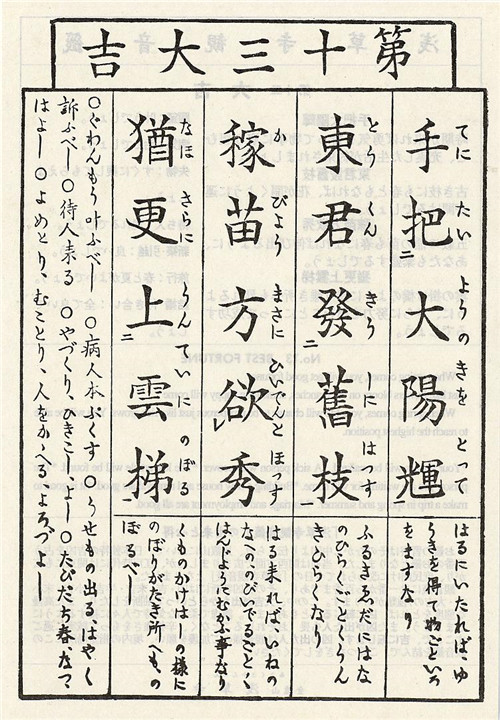 第十三大吉
てに たいようの きをとつて
手把二大陽輝一
はるにいたれば、ゆ
うきを得、物ごといろ
をますなり
とうくん きうしに はつす
東君發二舊枝一
ふるきゑだにはな
のひらくごとくうん
きひらくなり
かびよう まさに ひいでんと ほつす
稼苗方欲レ秀
はる来れば、いねの
なへののびいでるごとく
はんじようにむかふ事なり
なほ さらに うんていに のぼる
猶更上二雲梯一
くものかけはしの様に
のぼりがたき所へもの
ぼるべし
〇ぐわんもう叶ふべし 〇病人本ぷくす 〇うせもの出る、はやく
訴ふべし 〇待人来る 〇やづくり、ひきこしよし 〇たびだち春なつて
はよし 〇よめとり、むことり、人をかゝへるよろづよし